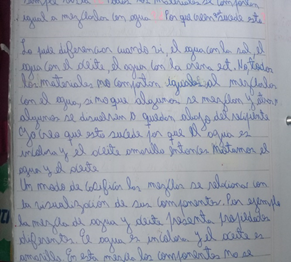 siempre todos los materiales se comportan
igual al mezclarlos con agua Por que creen ustedes esto
Lo pude diferenciar cuando vi, el agua con la sal, el
agua con el aceite, el agua con la arena ect. No todos
los materiales no comportan iguales al mezclar
con el agua, sino que algunos se mezclan y otros
algunos se disuelven o quedan abajo del recipiente
Yo creo que esto sucede por qué el agua es
incolora y el aceite amarillo entonces metemos el
agua y el aceite
Un modo de clasificar las mezclas se relaciona con
la visualización de sus componentes. Por ejemplo
la mezcla de agua y aceite presenta propiedades
diferentes. El agua es incolora y el aceite es
amarillo En esta mezcla los componentes no se